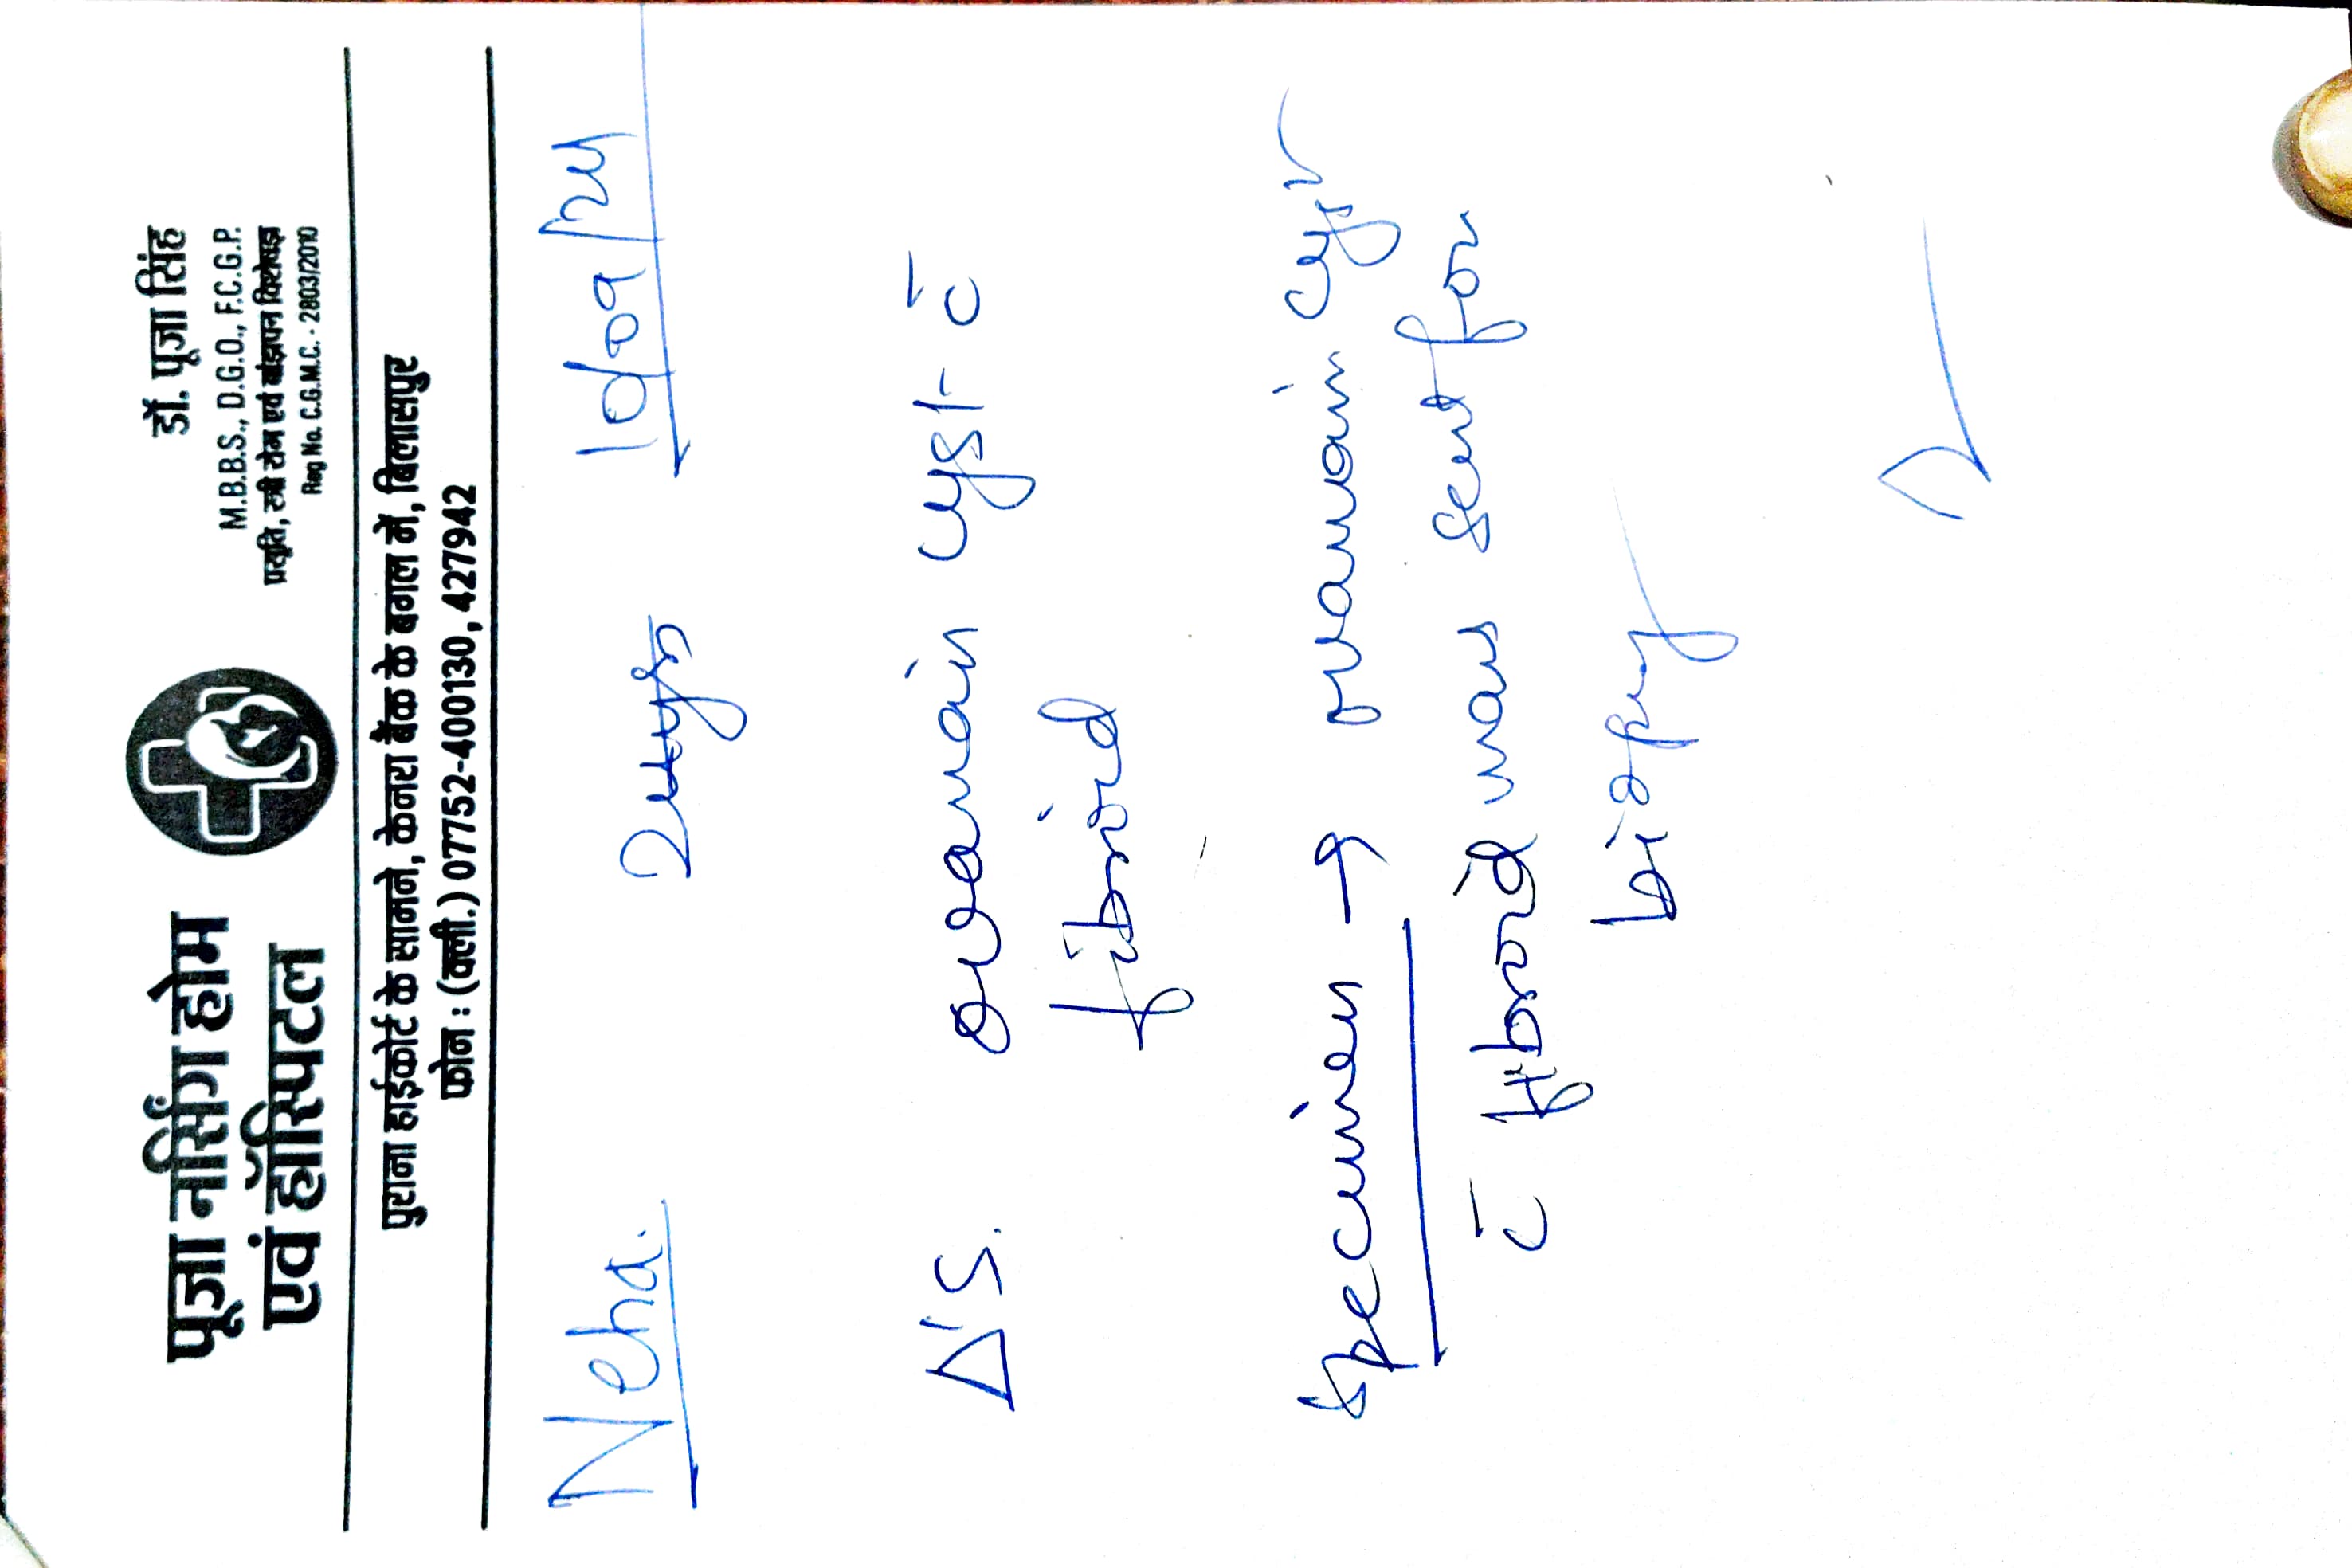 पूजा नर्सिंग होम
एवं हॉस्पिटल
डॉ. पूजा सिंह
M.B.B.S., D.G.O., F.C.G.P.
प्रसूति, स्त्री रोग एवं बांझपन विशेषज्ञ
Reg No. C.G.M.C. - 2803/2010
पुराना हाईकोर्ट के सामने, केनरा बैंक के बगल में, बिलासपुर
फोन : (क्ली.) 07752-400130, 427942
Neha.
Δ'S. ovarian cyst c̄
fibroid
specimen → ovarian cyst
c̄ fibroid was sent for
biopsy